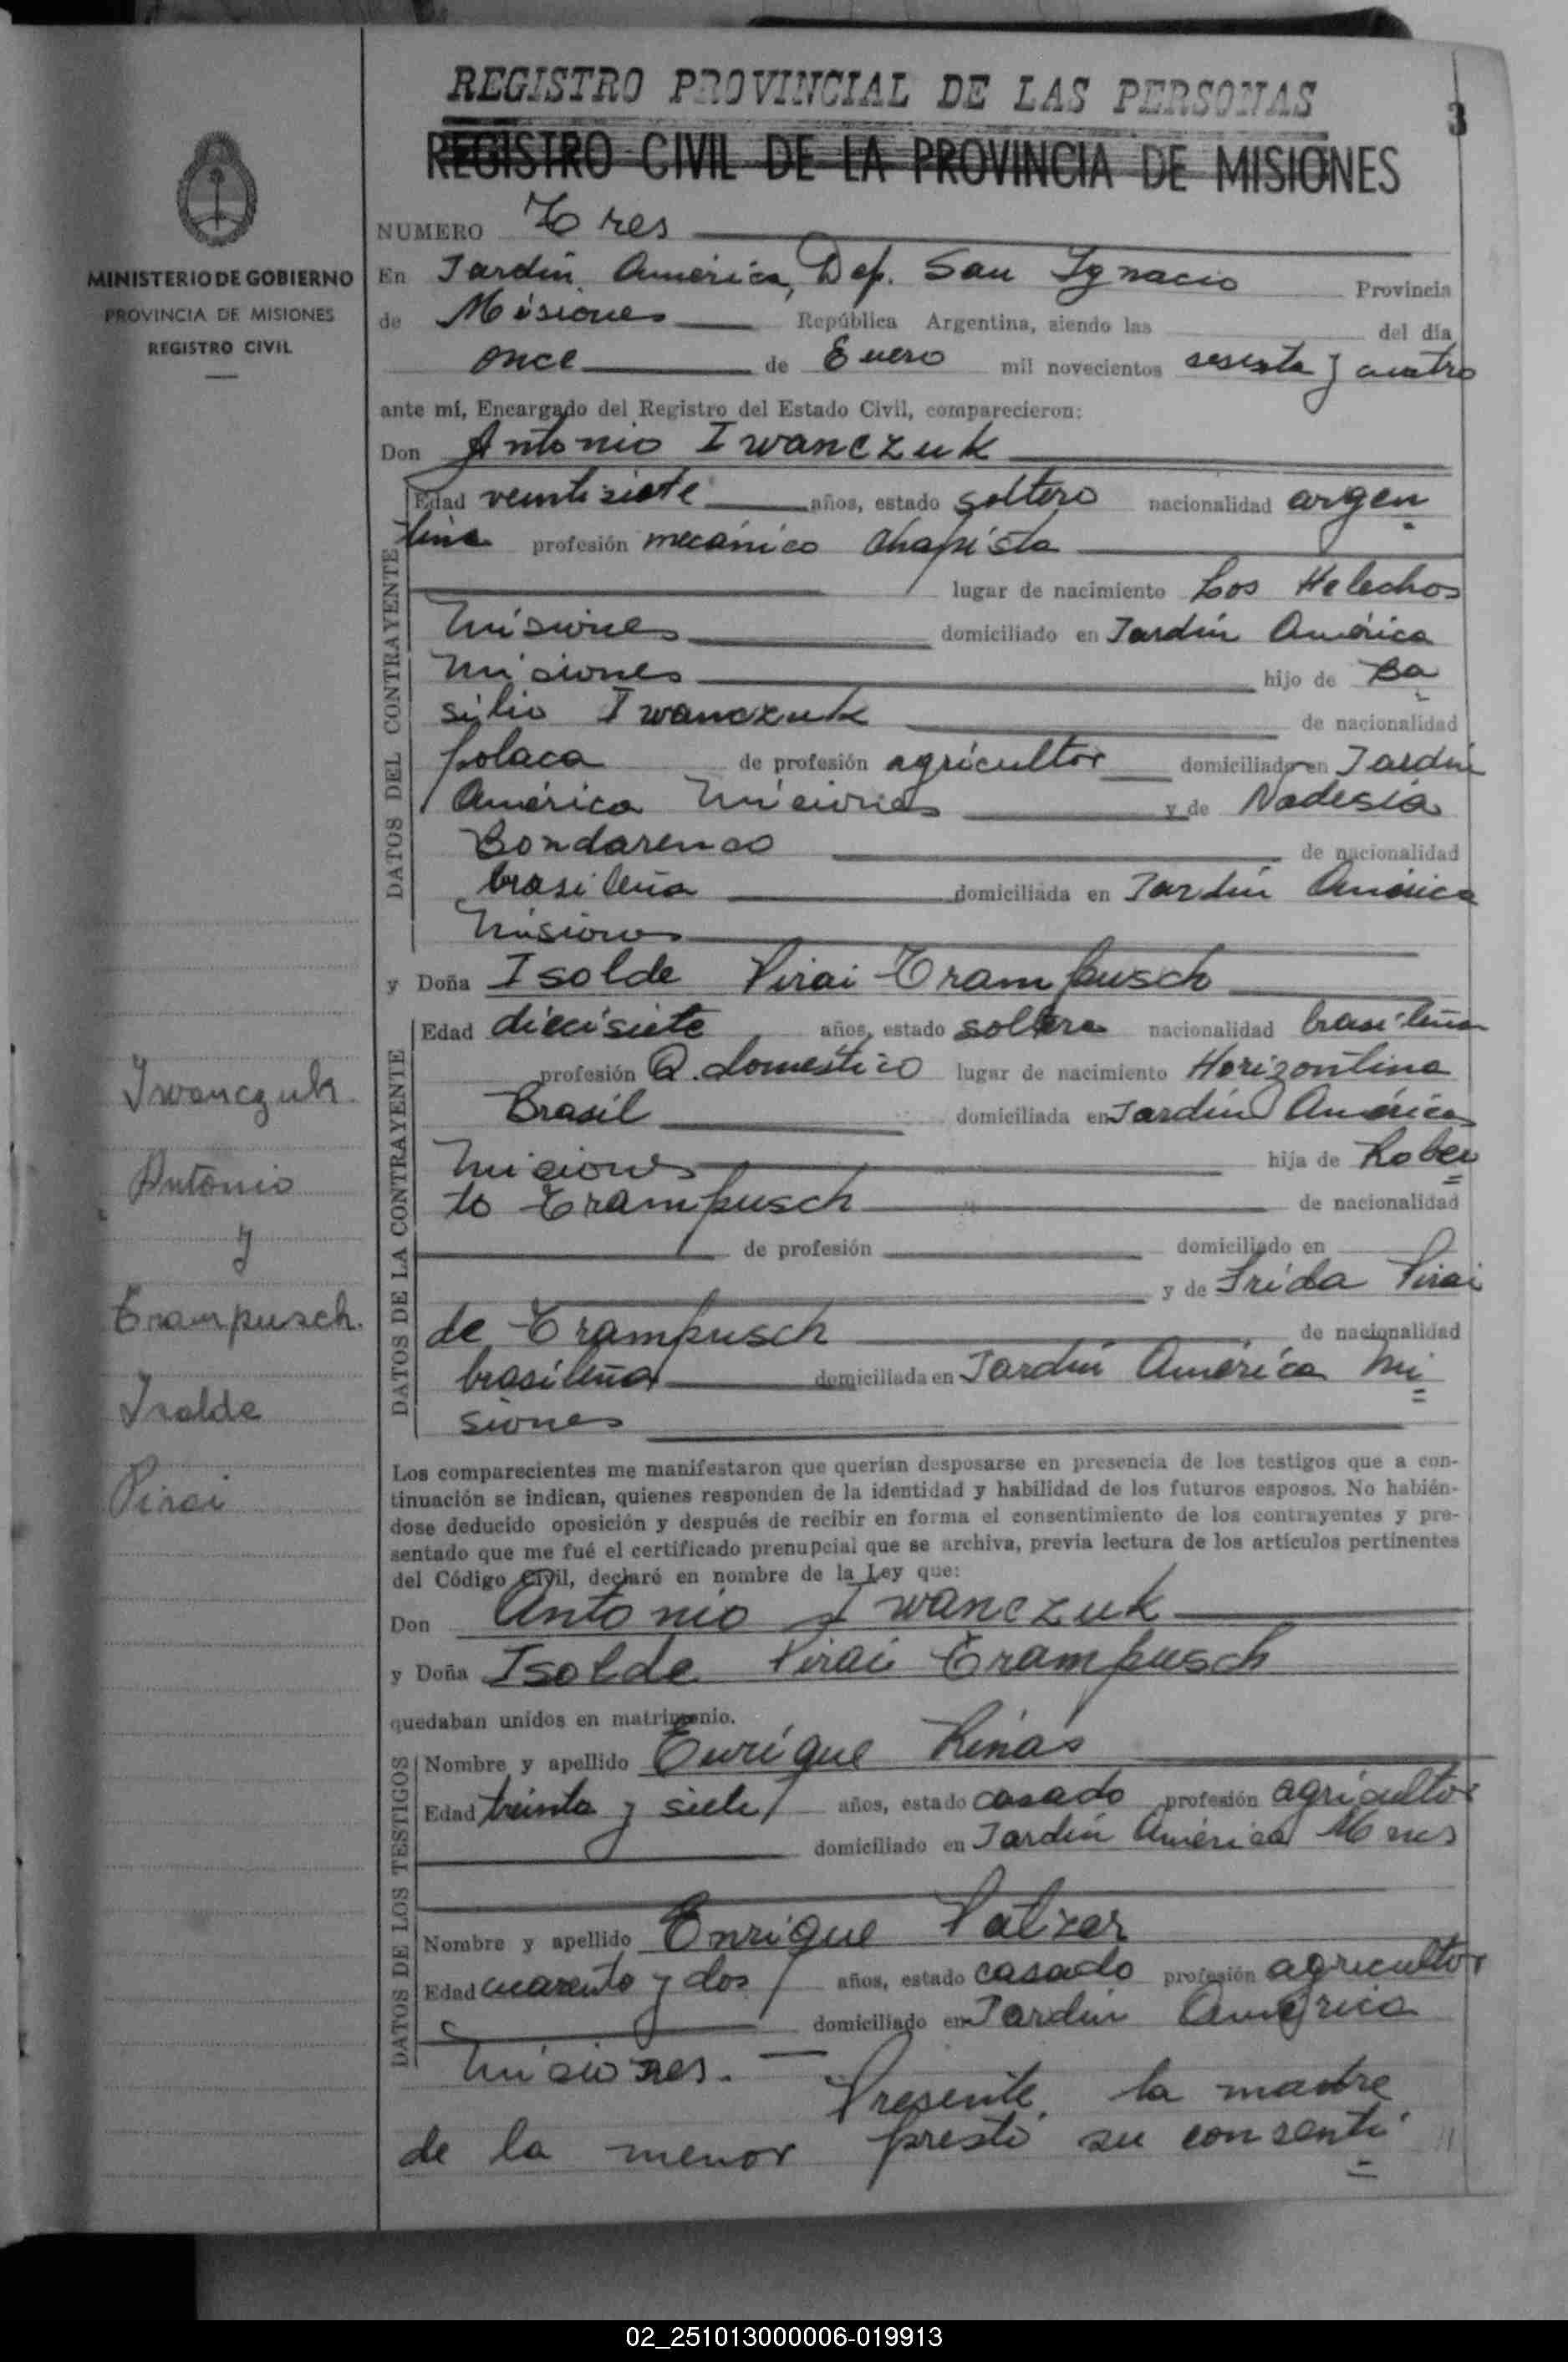 REGISTRO PROVINCIAL DE LAS PERSONAS
3
REGISTRO CIVIL DE LA PROVINCIA DE MISIONES
MINISTERIO DE GOBIERNO
PROVINCIA DE MISIONES
REGISTRO CIVIL
NUMERO Tres
En Jardín América, Dep. San Ignacio Provincia
de Misiones República Argentina, siendo las del día
once de Enero mil novecientos sesenta y cuatro
ante mí, Encargado del Registro del Estado Civil, comparecieron:
Don Antonio Iwanczuk
DATOS DEL CONTRAYENTE
Edad veintisiete años, estado soltero nacionalidad argen
tina profesión mecánico chapista
lugar de nacimiento Los Helechos
Misiones domiciliado en Jardín América
Misiones hijo de Ba
silio Iwanczuk de nacionalidad
polaca de profesión agricultor domiciliado en Jardín
América Misiones y de Nadesia
Bondarenco de nacionalidad
brasileña domiciliada en Jardín América
Misiones
y Doña Isolde Pirai Trampusch
DATOS DE LA CONTRAYENTE
Edad diecisiete años, estado soltera nacionalidad brasileña
profesión Q. domestico lugar de nacimiento Horizontina
Brasil domiciliada en Jardín América
Misiones hija de Rober
to Trampusch de nacionalidad
de profesión domiciliado en
y de Frida Pirai
de Trampusch de nacionalidad
brasileña domiciliada en Jardín América Mi
siones
Iwanczuk.
Antonio
y
Trampusch.
Isolde
Pirai
Los comparecientes me manifestaron que querían desposarse en presencia de los testigos que a con-
tinuación se indican, quienes responden de la identidad y habilidad de los futuros esposos. No habién-
dose deducido oposición y después de recibir en forma el consentimiento de los contrayentes y pre-
sentado que me fué el certificado prenupcial que se archiva, previa lectura de los artículos pertinentes
del Código Civil, declaré en nombre de la Ley que:
Don Antonio Iwanczuk
y Doña Isolde Pirai Trampusch
quedaban unidos en matrimonio.
DATOS DE LOS TESTIGOS
Nombre y apellido Enrique Rinas
Edad treinta y siete años, estado casado profesión agricultor
domiciliado en Jardín América Mnes
Nombre y apellido Enrique Patzer
Edad cuarenta y dos años, estado casado profesión agricultor
domiciliado en Jardín América
Misiones.- Presente, la madre
de la menor prestó su consenti
02_251013000006-019913